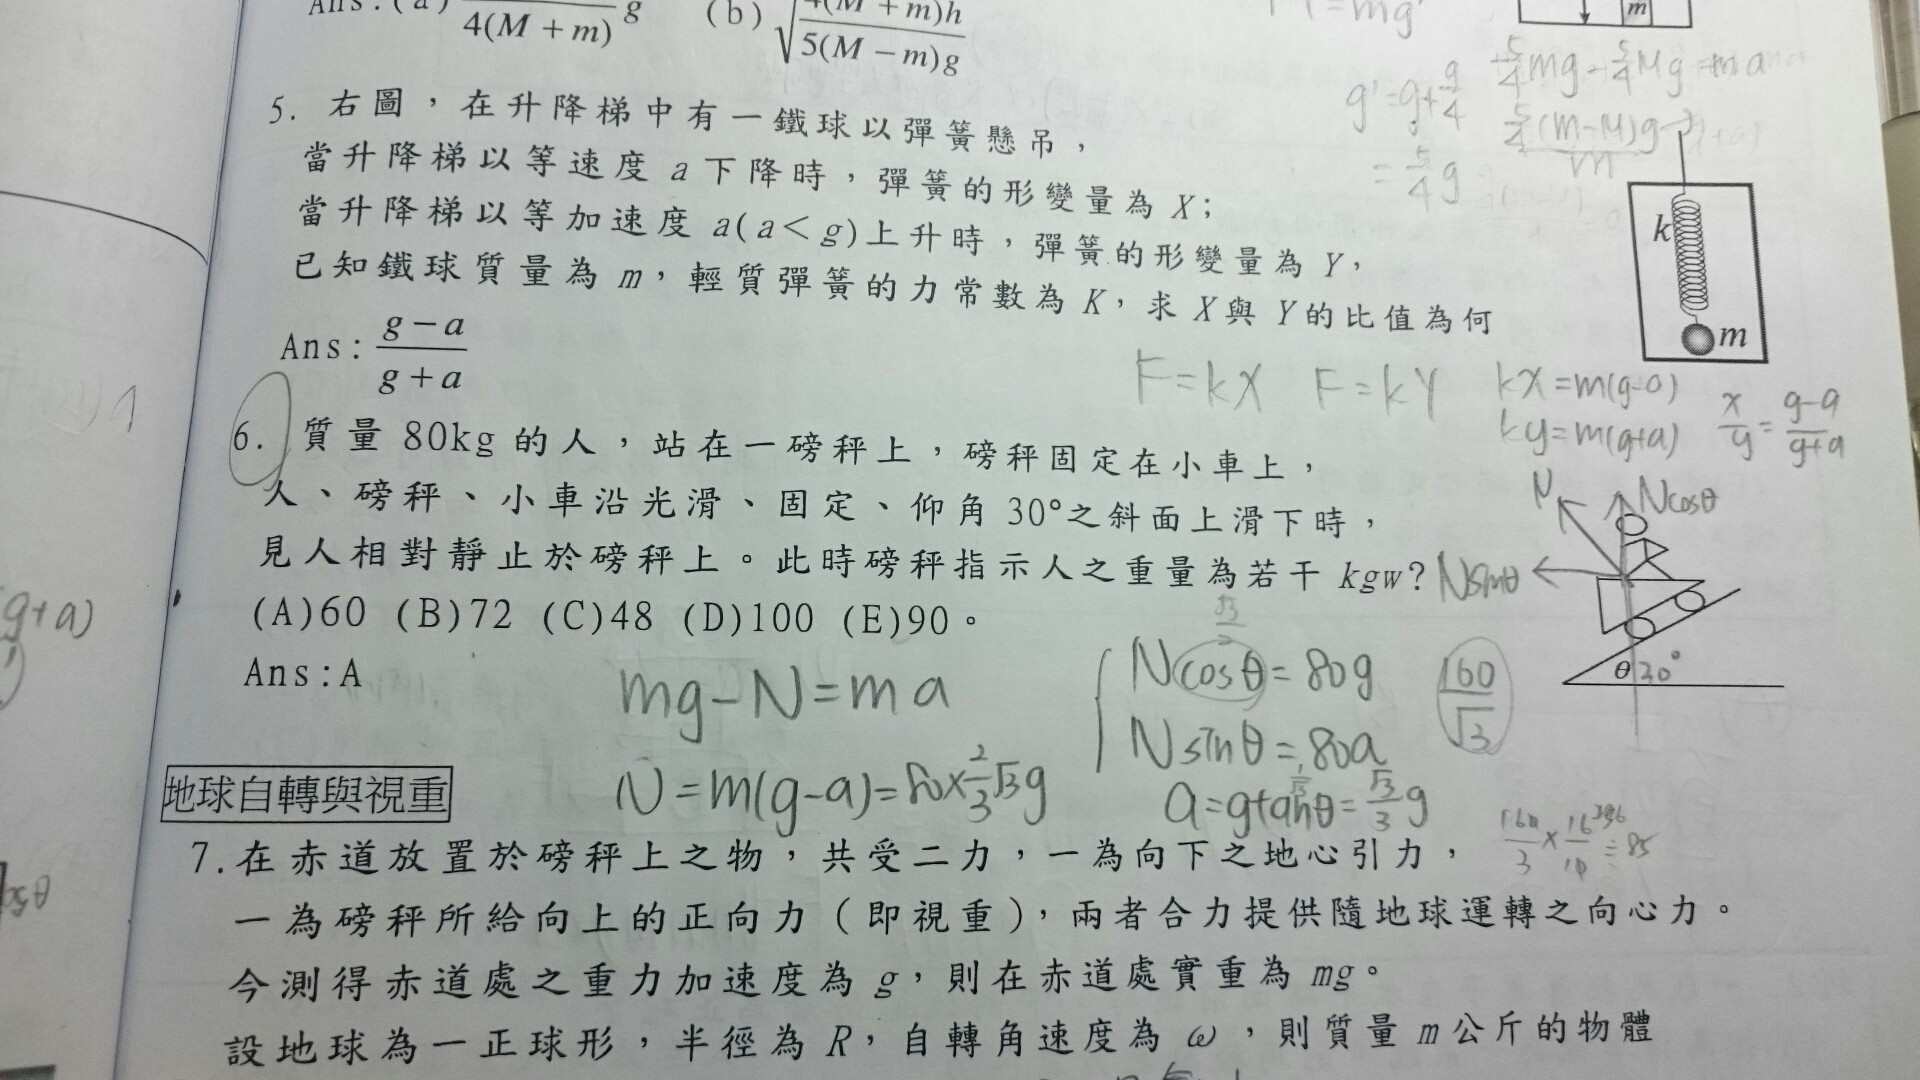 4(M+m) g (b) 4(M+m)h
5(M-m)g
5. 右圖，在升降梯中有一鐵球以彈簧懸吊，
當升降梯以等速度 a 下降時，彈簧的形變量為 X；
當升降梯以等加速度 a(a＜g)上升時，彈簧的形變量為 Y，
已知鐵球質量為 m，輕質彈簧的力常數為 K，求 X與 Y的比值為何
Ans: (g-a)/(g+a)
k
m
g'=g+g/4
=5/4 g
F=kX F=kY
kX=m(g-a)
ky=m(g+a)
x/y=(g-a)/(g+a)
6. 質量 80kg 的人，站在一磅秤上，磅秤固定在小車上，
人、磅秤、小車沿光滑、固定、仰角 30°之斜面上滑下時，
見人相對靜止於磅秤上。此時磅秤指示人之重量為若干 kgw?
(A)60 (B)72 (C)48 (D)100 (E)90。
Ans:A
N
Ncosθ
Nsinθ
θ 30°
mg-N=ma
N=m(g-a)=80×2/3√3g
√3/2
Ncosθ=80g
Nsinθ=80a
160/√3
a=gtanθ=√3/3 g
地球自轉與視重
7.在赤道放置於磅秤上之物，共受二力，一為向下之地心引力，
一為磅秤所給向上的正向力(即視重)，兩者合力提供隨地球運轉之向心力。
今測得赤道處之重力加速度為 g，則在赤道處實重為 mg。
設地球為一正球形，半徑為 R，自轉角速度為 ω，則質量 m公斤的物體